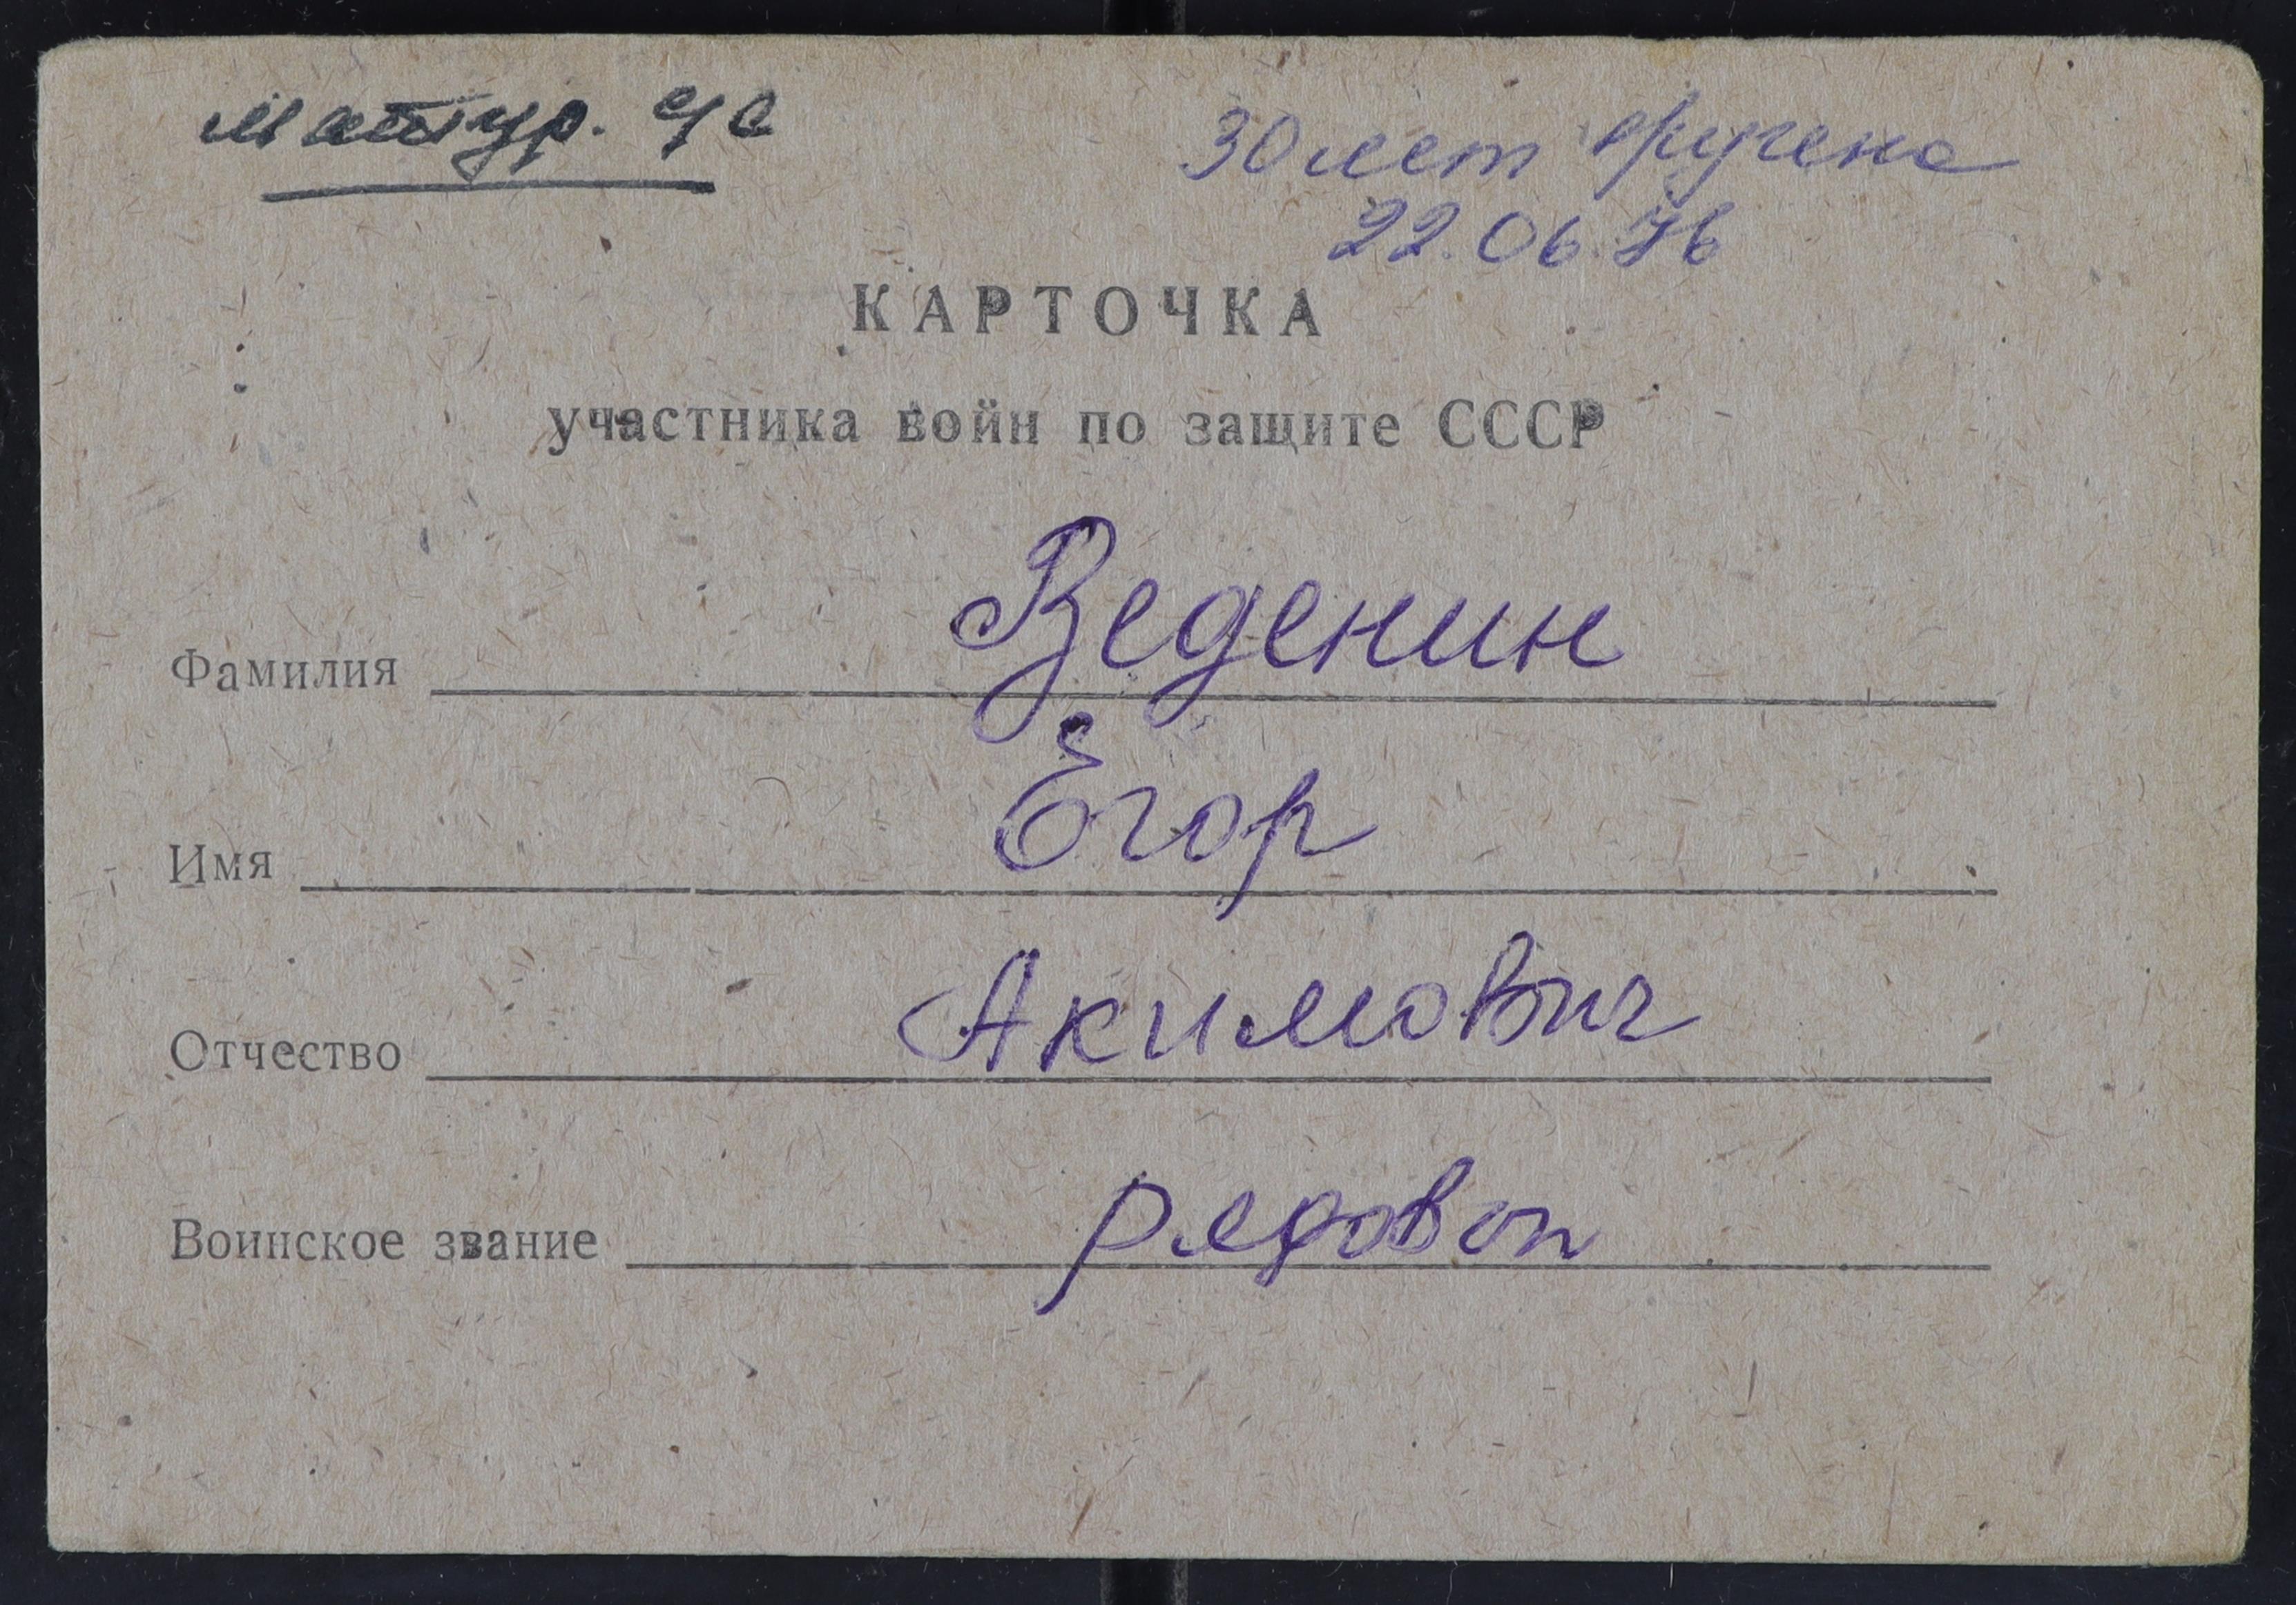 Матур. с/с
30 лет вручена
22.06.76
КАРТОЧКА
участника войн по защите СССР
Фамилия Веденин
Имя Егор
Отчество Акимович
Воинское звание рядовой